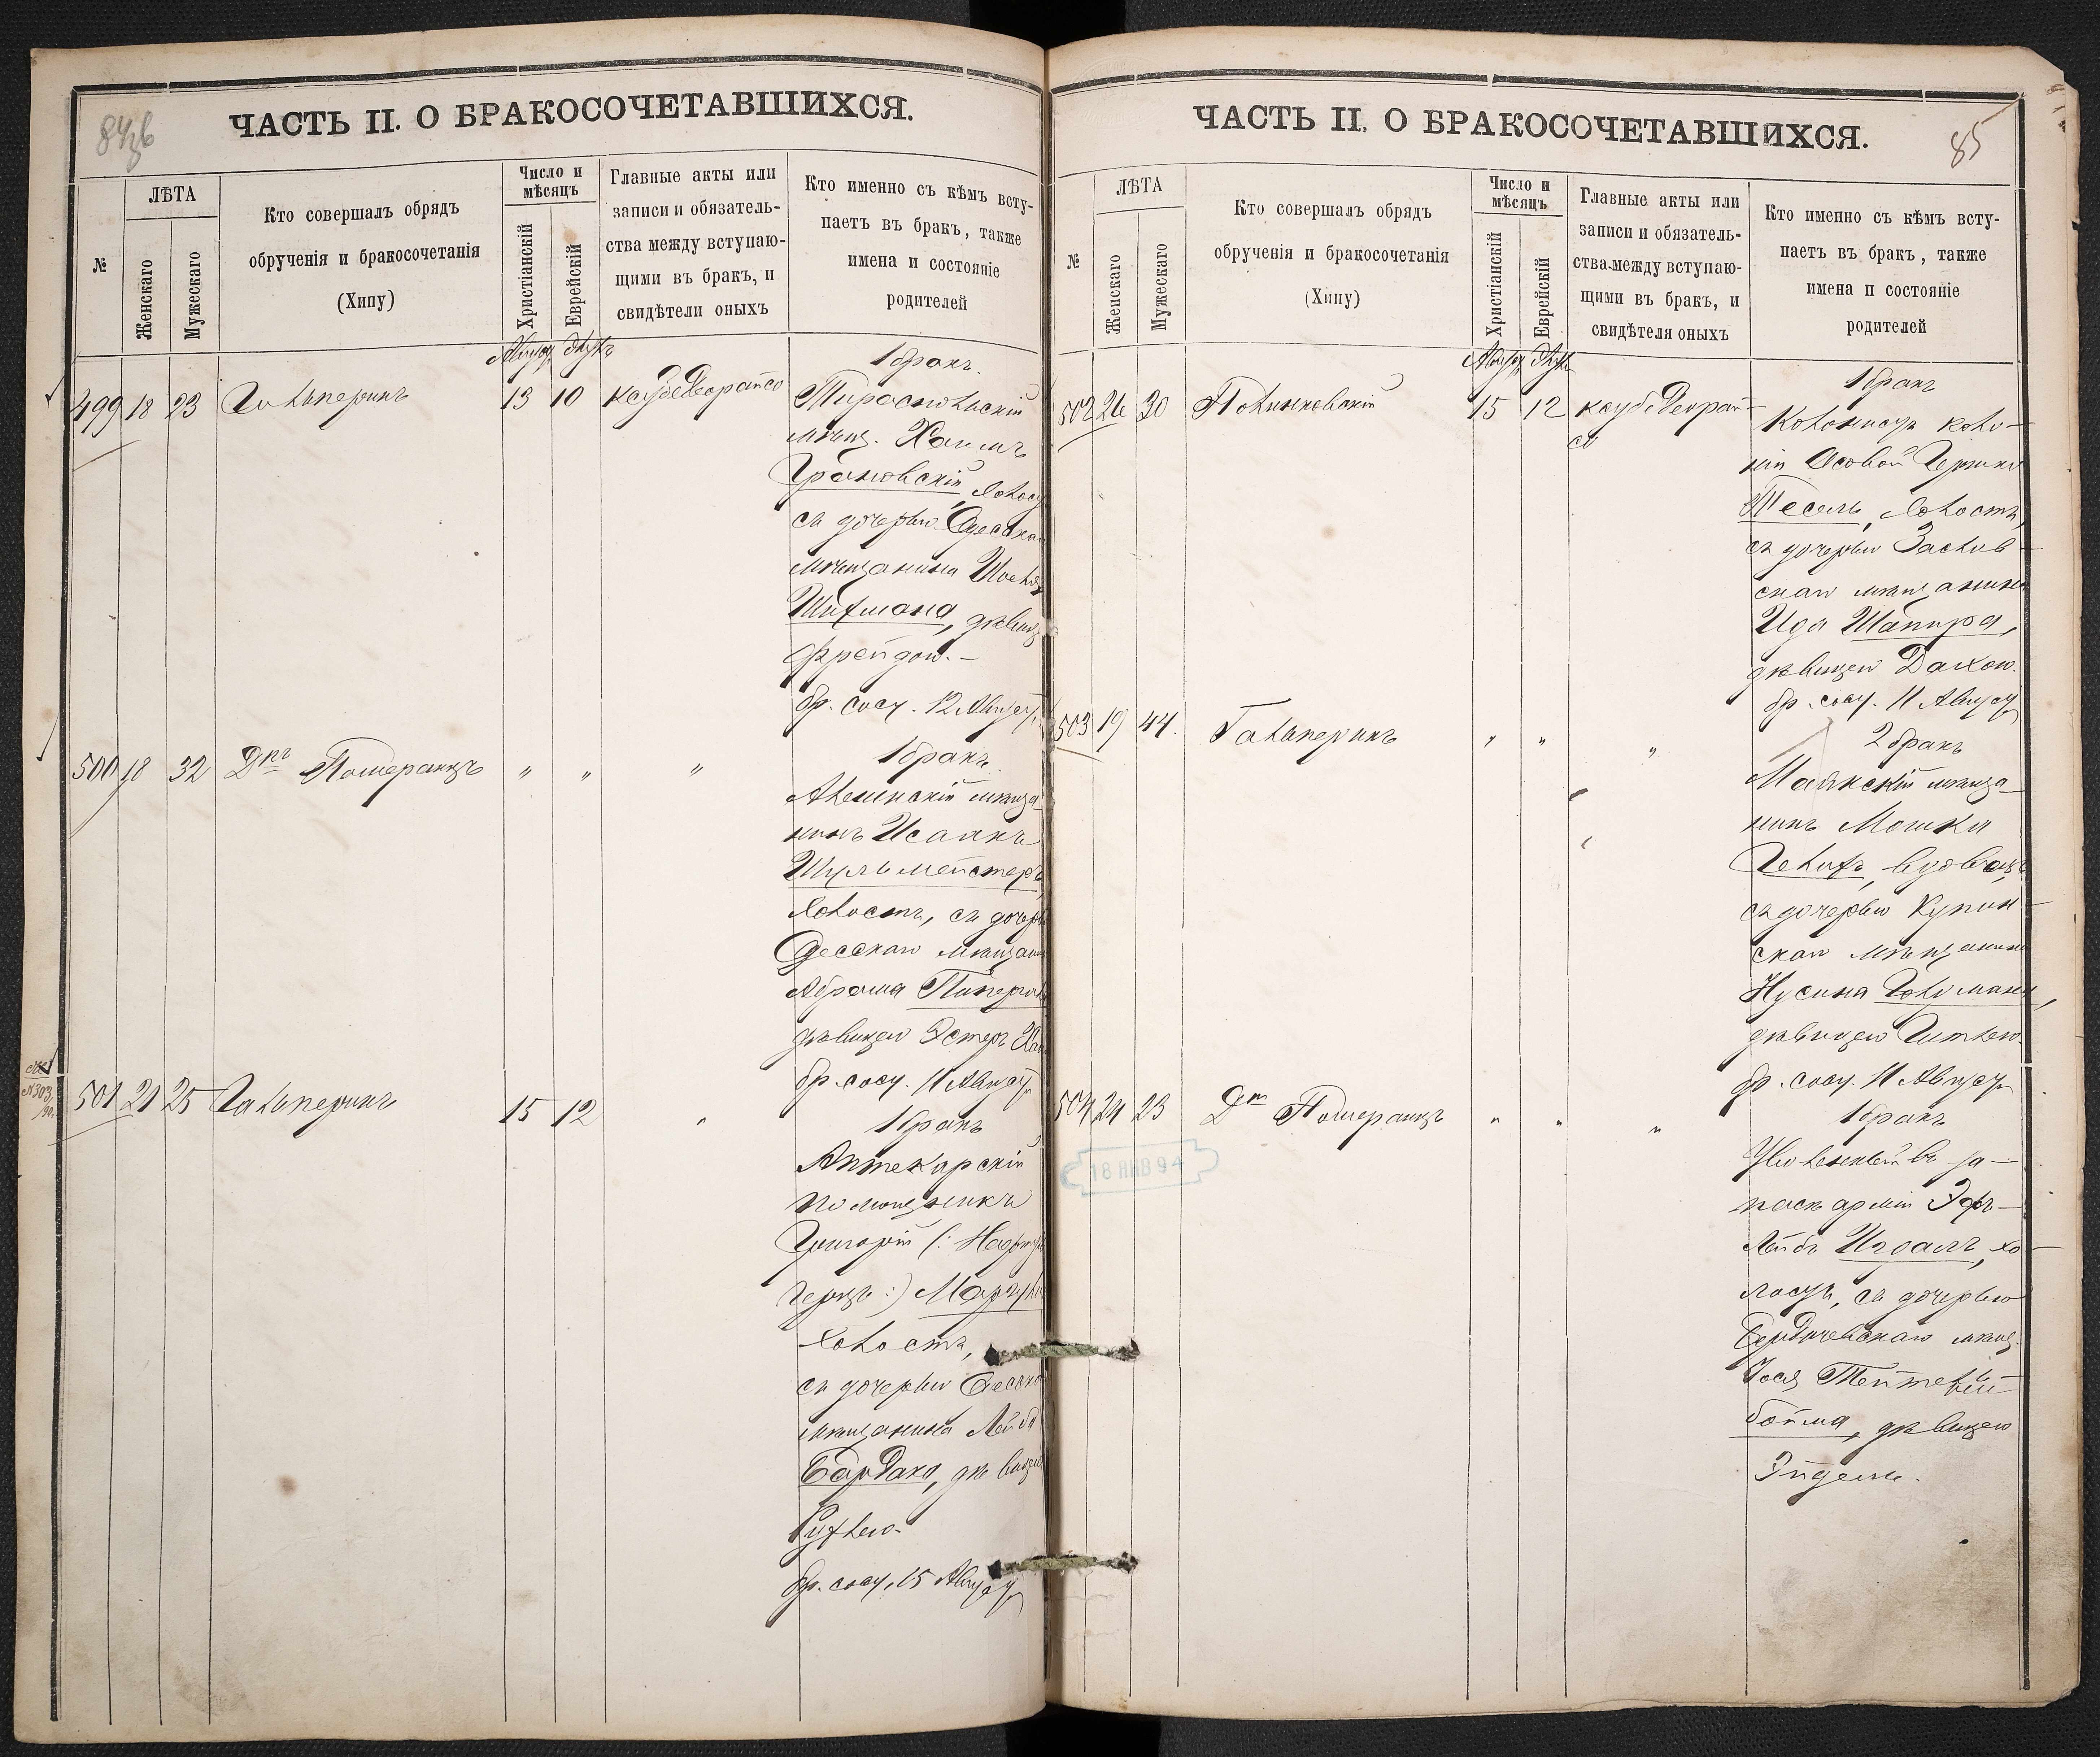 84об
ЧАСТЬ II. О БРАКОСОЧЕТАВШИХСЯ.
№
ЛѢТА
Женскаго
Мужескаго
Кто совершалъ обрядъ
обрученія и бракосочетанія
(Хипу)
Число и
мѣсяцъ
Христіанскій
Еврейскій
Главные акты или
записи и обязатель-
ства между вступаю-
щими въ бракъ, и
свидѣтели оныхъ
Кто именно съ кѣмъ всту-
паетъ въ бракъ, также
имена и состояніе
родителей
499 18 23 Гальперинъ 13 10
1 бракъ.
Тираспольскій
мѣщ. Хаимъ
Грановскій, холост
съ дочерью Одесскаго
мѣщанина
Шифмана, дѣвиц
Фрейдою. —
бр. сост. 12 Август
500 18 32 Д-ръ Померанцъ „ „ „
1 бракъ
мѣща-
нинъ Исаакъ
Шульмейстеръ
холостъ, съ дочерью
Одесскаго мѣщан
Абрама
дѣвицею Эстеръ
бр. сост. 11 Август
№ 303
501 21 25 Гальперинъ 15 12 „
1 бракъ
Аптекарскій
помощникъ
Григорій (:
Герцъ:)
холостъ,
съ дочерью Одесск
мѣщанина Лейба
Бардаха, дѣвицею
Рухлею.
бр. сост. 15 Август
85
ЧАСТЬ II. О БРАКОСОЧЕТАВШИХСЯ.
№
ЛѢТА
Женскаго
Мужескаго
Кто совершалъ обрядъ
обрученія и бракосочетанія
(Хипу)
Число и
мѣсяцъ
Христіанскій
Еврейскій
Главные акты или
записи и обязатель-
ства между вступаю-
щими въ бракъ, и
свидѣтеля оныхъ
Кто именно съ кѣмъ всту-
паетъ въ бракъ, также
имена и состояніе
родителей
502 26 30 Полинковскій 15 12
1 бракъ
Колонистъ коло-
ніи
Тесель, холостъ,
съ дочерью Заслав-
скаго мѣщанина
Ида Шапира,
дѣвицею
бр. сост. 11 Август
503 19 44 Гальперинъ „ „ „
2 бракъ
Маякскій мѣща-
нинъ Мошка
вдовецъ,
съ дочерью Купин-
скаго мѣщанина
Нусина Гольдмана,
дѣвицею Гитлею.
бр. сост. 11 Август
504 21 23 Д-ръ Померанцъ „ „ „
1 бракъ
Уволенный въ за-
пасъ арміи
Лейбъ хо-
лостъ, съ дочерью
Бердичевскаго мѣщ.
дѣвицею
Эйдель.
18 ЯНВ 94